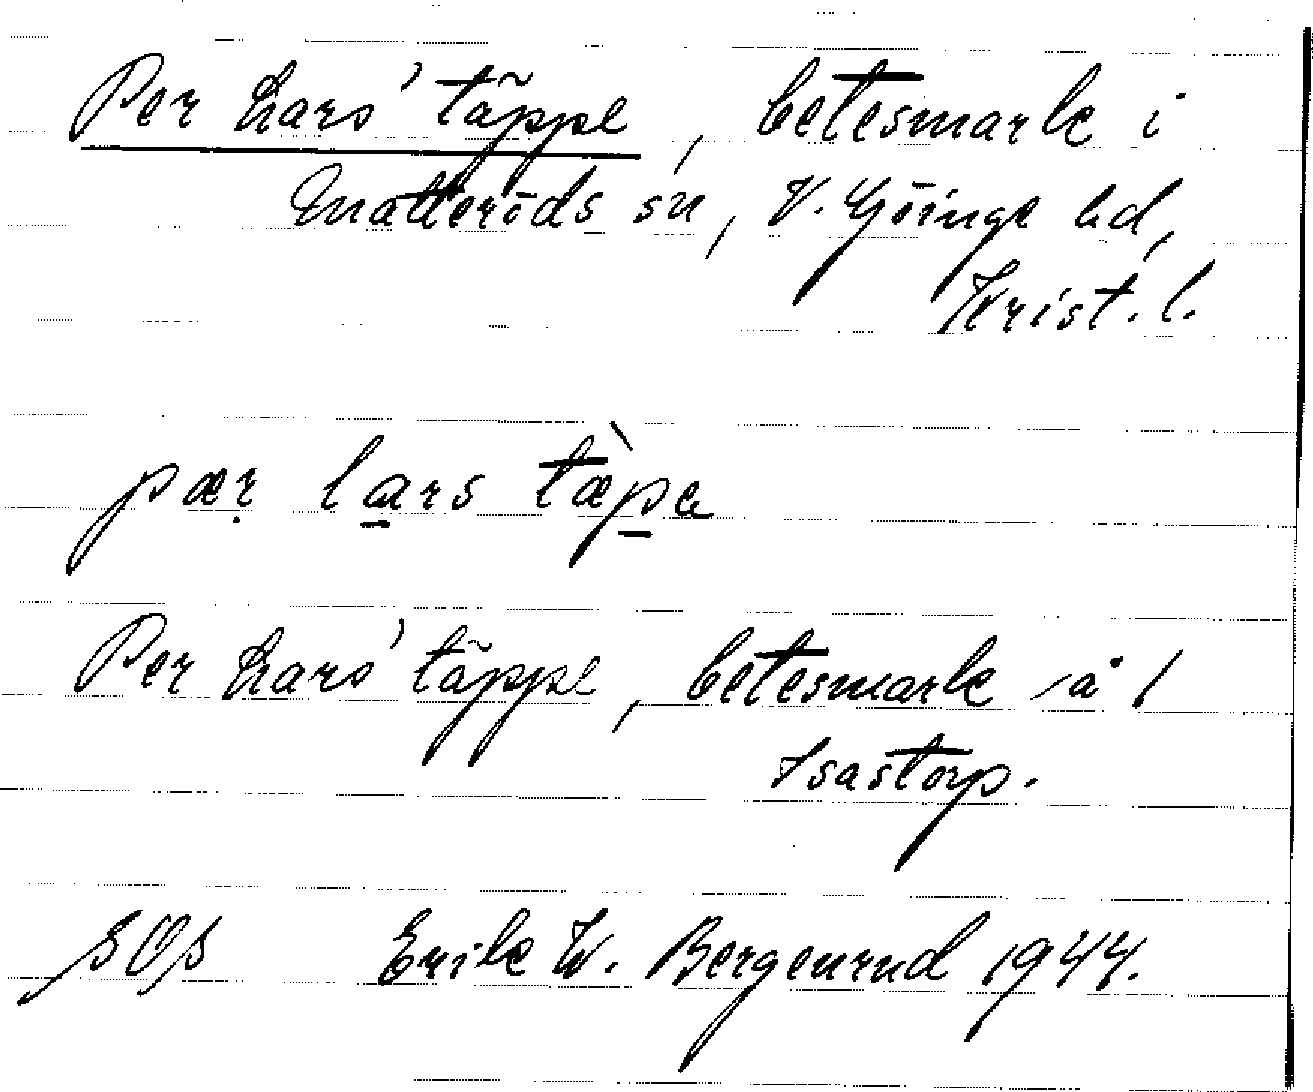 Per Lars' täppe, betesmark i
Matteröds sn, V. Göinge hd,
Krist. l.
pæṛ la̲rs tæ̀p̲a
Per Lars' täppe, betesmark å 1
Isastorp.
SOS Erik W. Bergenrud 1944.